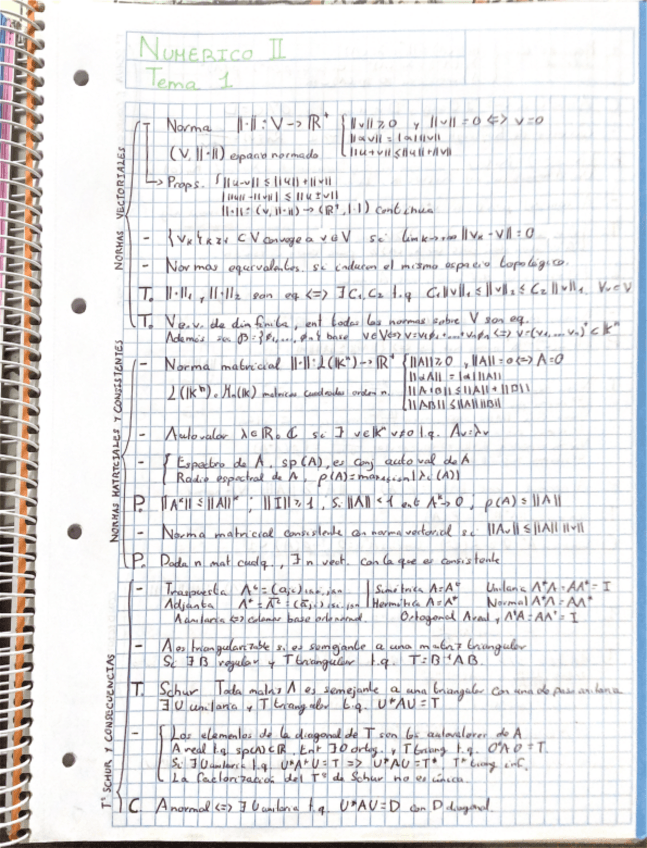 NUMERICO II
Tema 1
NORMAS VECTORIALES
Norma ||·||: V -> R⁺ { ||v|| ≥ 0 y ||v|| = 0 <=> v=0
||αv|| = |α| ||v||
(V, ||·||) espacio normado ||u+v|| ≤ ||u|| + ||v||
Props. { ||u-v|| ≤ ||u|| + ||v||
| ||u|| - ||v|| | ≤ ||u ± v||
||·||: (V, ||·||) -> (R⁺, |·|) continua
- {Vₖ}ₖ≥₁ ⊂ V converge a v∈V si lim k->∞ ||Vₖ - V|| = 0
- Normas equivalentes. si inducen el mismo espacio topológico.
T. ||·||₁ y ||·||₂ son eq <=> ∃ C₁, C₂ t.q C₁||v||₁ ≤ ||v||₂ ≤ C₂||v||₁ ∀v∈V
T. V e.v. de dim finita, ent todas las normas sobre V son eq.
Además sea β={φ₁,...,φₙ} base v∈V <=> v=v₁φ₁+...+vₙφₙ <=> v=(v₁...vₙ)ᵗ ∈ Kⁿ
NORMAS MATRICIALES Y CONSISTENTES
- Norma matricial ||·||: L(Kⁿ) -> R⁺ { ||A|| ≥ 0, ||A|| = 0 <=> A=0
||αA|| = |α| ||A||
L(Kⁿ) = Mₙ(K) matrices cuadradas orden n. ||A+B|| ≤ ||A|| + ||B||
||AB|| ≤ ||A|| ||B||
- Autovalor λ∈R o C si ∃ v∈Kⁿ v≠0 t.q. Av=λv
- { Espectro de A, sp(A), es conj autoval de A
Radio espectral de A, ρ(A)= |λᵢ(A)|
P. ||Aᵏ|| ≤ ||A||ᵏ ; ||I|| ≥ 1, Si ||A|| < 1 ent Aᵏ->0 ; ρ(A) ≤ ||A||
- Norma matricial consistente con norma vectorial si ||Av|| ≤ ||A|| ||v||
P. Dada n. mat cualq, ∃ n vect. con la que es consistente
Tª SCHUR Y CONSECUENCIAS
- Traspuesta Aᵗ = | Simétrica A=Aᵗ Unitaria A*A = AA* = I
Adjunta A* = | Hermítica A=A* Normal A*A = AA*
A unitaria <=> columnas base ortonormal Ortogonal A real y AᵗA = AAᵗ = I
- A es triangularizable si es semejante a una matriz triangular
Si ∃ B regular y T triangular t.q. T=B⁻¹AB
T. Schur Toda matriz A es semejante a una triangular con una de paso unitaria
∃ U unitaria y T triangular t.q. U*AU = T
- Los elementos de la diagonal de T son los autovalores de A
A real t.q sp(A)⊂R. Ent ∃ O ortog. y T triang t.q. OᵗAO = T.
Si ∃ U unitaria t.q U*A*U = T => U*AU = T* T* triang inf.
La factorización del Tª de Schur no es única.
C. A normal <=> ∃ U unitaria t.q. U*AU = D con D diagonal.